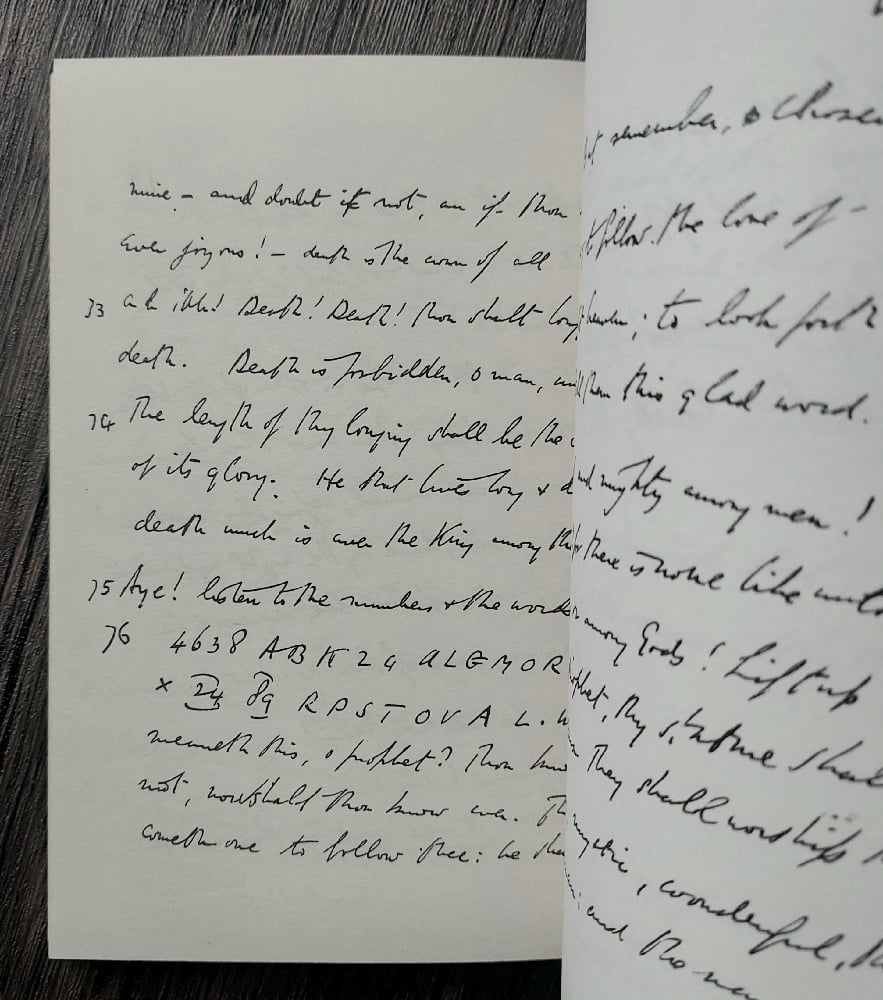 mine - and doubt it not, an if thou
ever joyous! - death is the crown of all
73 ah! ah! Death! Death! thou shalt long
death. Death is forbidden, o man,
74 The length of thy longing shall be the
of its glory. He that lives long & d
death much is ever the King among the
75 Aye! listen to the numbers & the words
76 4638 ABK 24 ALGMOR
x 24 89 RPSTOVAL. W
meaneth this, o prophet? Thou know
not, nor shalt thou know ever. Th
cometh one to follow thee: he sha
remember, o chosen
to follow the love of
heaven; to look forth
them this glad word.
and mighty among men!
for there is none like unto
among Gods! Lift up
prophet, thy stature shall
They shall worship
mystic, wonderful, th
and the nu